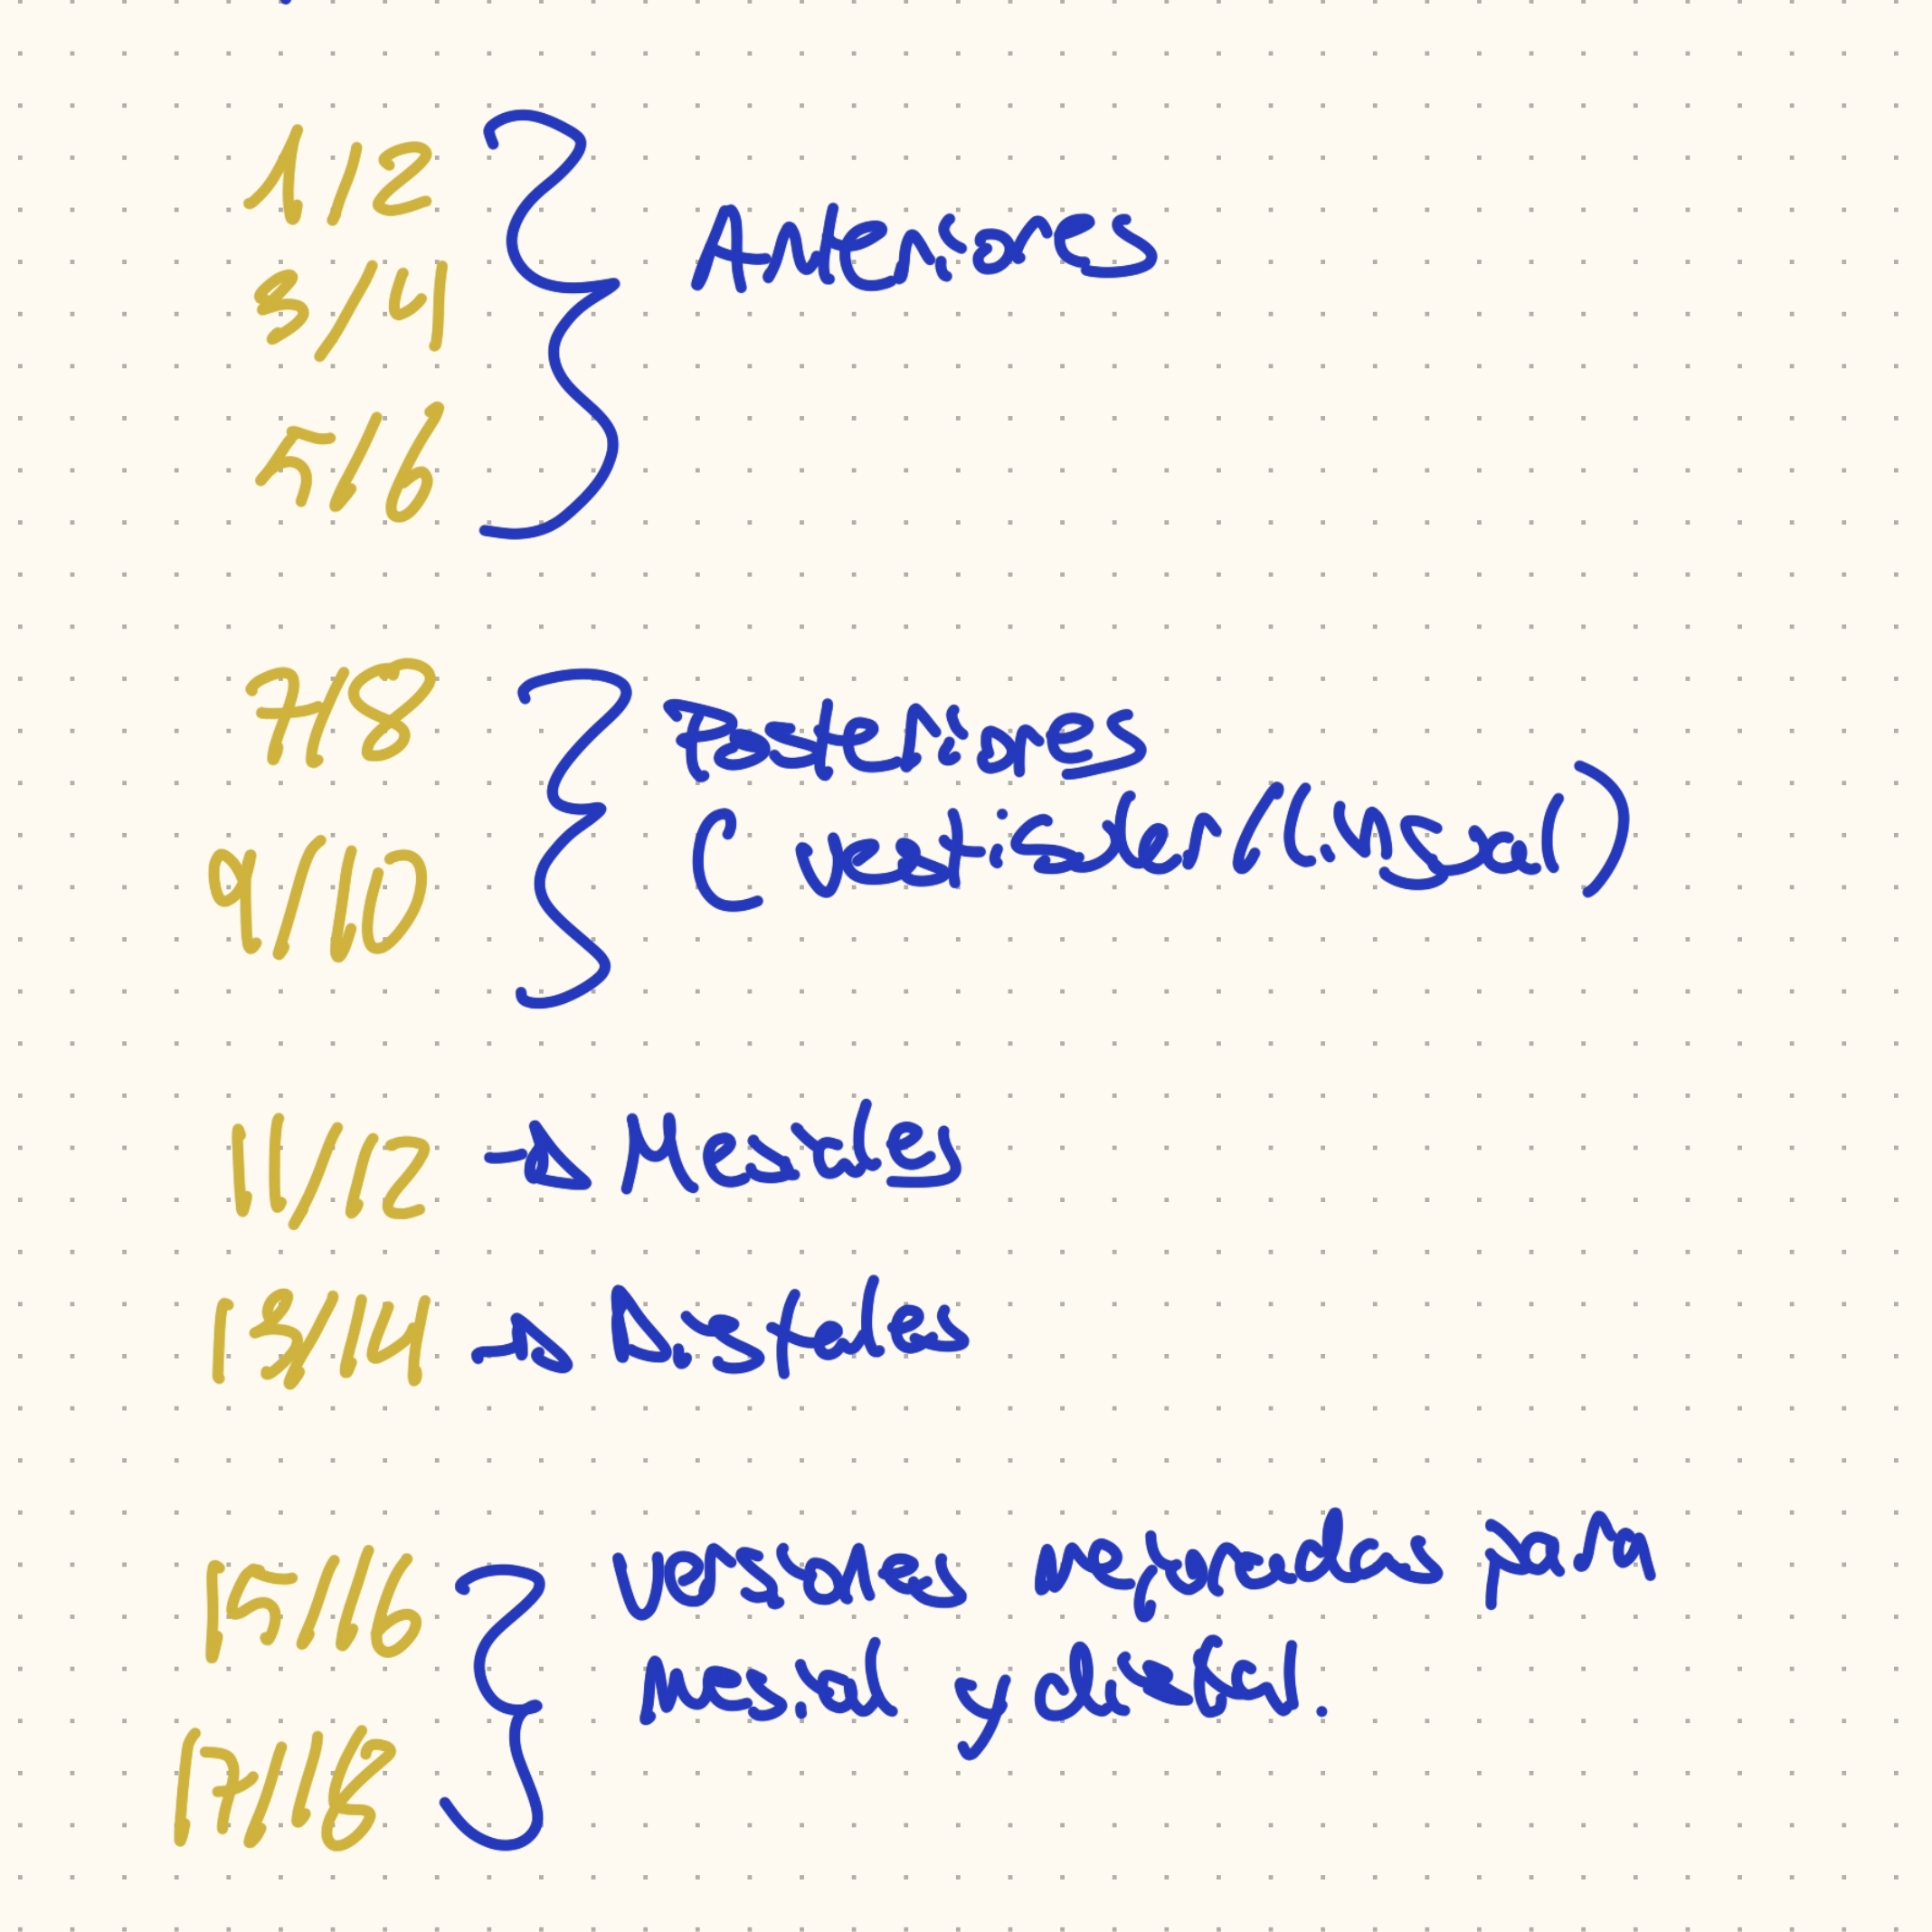 1/2
3/4
5/6
Anteriores
7/8
9/10
Posteriores
(vestibular/lingual)
11/12 → Mesiales
13/14 → Distales
15/16
17/18
versiones mejoradas para
mesial y distal.